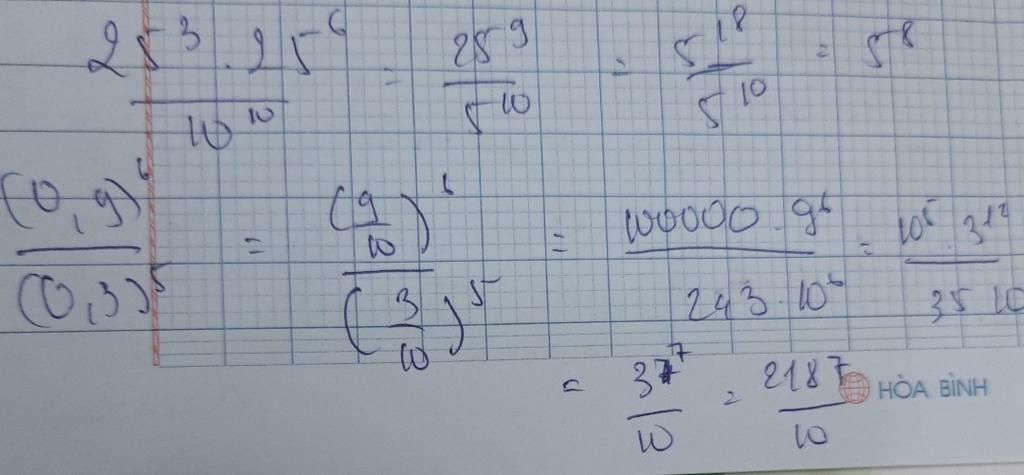 25³ . 25⁶ / 10¹⁰ = 25⁹ / 5¹⁰ = 5¹⁸ / 5¹⁰ = 5⁸
(0,9)⁶ / (0,3)⁵ = (9/10)⁶ / (3/10)⁵ = 100000 . 9⁶ / 243 . 10⁶ = 10⁵ . 3¹² / 3⁵ 10
= 3⁷ / 10 = 2187 / 10
HÒA BÌNH